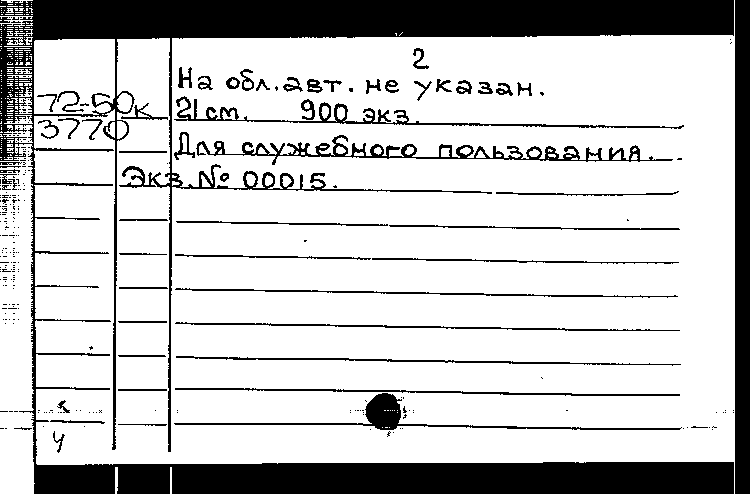 2
На обл. авт. не указан.
72-50к 21 см. 900 экз.
3770
Для служебного пользования.
Экз. № 00015.
у